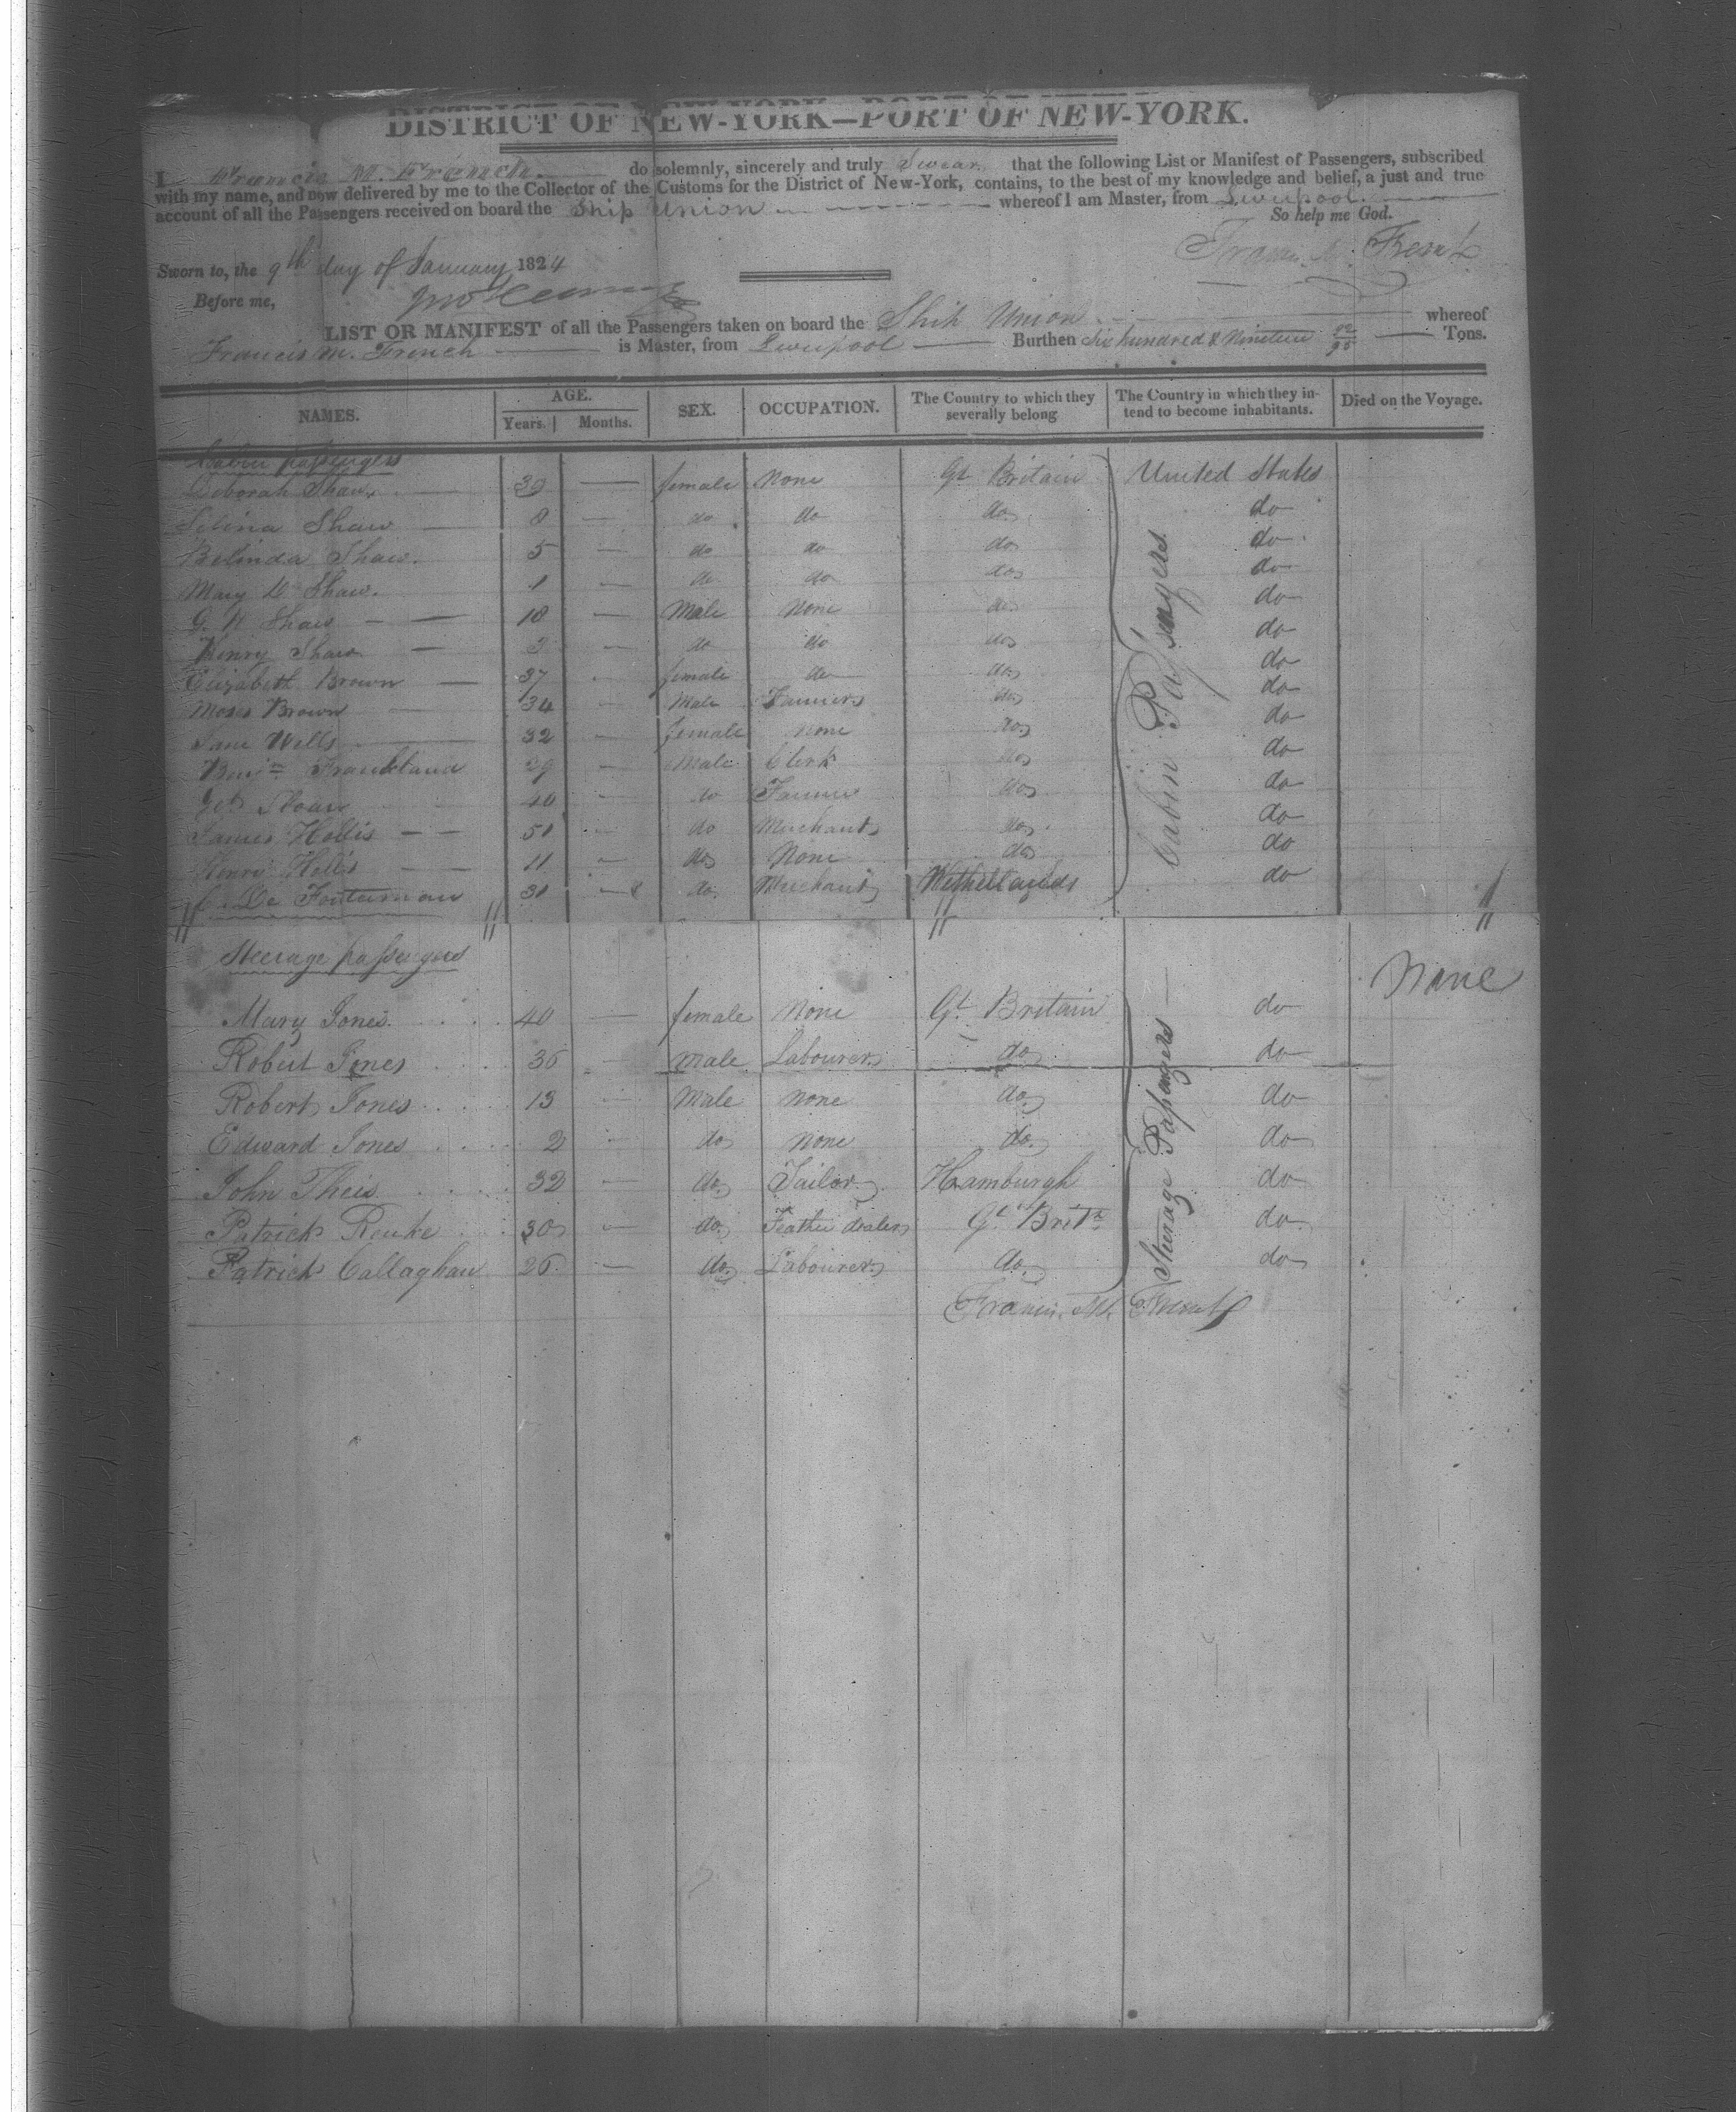 DISTRICT OF NEW-YORK—PORT OF NEW-YORK.
I Francis M. French do solemnly, sincerely and truly Swear that the following List or Manifest of Passengers, subscribed
with my name, and now delivered by me to the Collector of the Customs for the District of New-York, contains, to the best of my knowledge and belief, a just and true
account of all the Passengers received on board the Ship Union whereof I am Master, from Liverpool.
So help me God.
Francis M. French
Sworn to, the 9th day of January 1824
Before me,
LIST OR MANIFEST of all the Passengers taken on board the Ship Union whereof
Francis M. French is Master, from Liverpool Burthen Six hundred & Nineteen Tons.
NAMES. AGE. Years. Months. SEX. OCCUPATION. The Country to which they severally belong The Country in which they intend to become inhabitants. Died on the Voyage.
Cabin passengers
Deborah Shaw 39 — female None Gt Britain United States
Selina Shaw — 8 — do do do do
Belinda Shaw. 5 — do do do do
Mary Shaw. 1 — do do do do
G. Shaw — 18 — Male None do do
Henry Shaw — 3 — do do do do
Elizabeth Brown — 37 female do do do
Moses Brown 34 — Male Farmer do do
Jane Wells 32 — female none do do
Benjn Frankland 29 — Male Clerk do do
Sloan 40 do Farmer do do
James Hollis — — 51 — do Merchant do do
Henry Hollis — — 11 — do None do do
De 31 — do. Merchant do
Cabin Passengers
Steerage passengers
None
Mary Jones. 40 — female None Gt. Britain do
Robert Jones 36 — male Labourer do do
Robert Jones 13 — Male none do. do
Edward Jones 2 do none do. do
John Theis 32 — do. Tailor Hamburgh do
Patrick Rourke 30 — do. Feather dealer Gt. Britn do
Patrick Callaghan 26 — do. Labourer do. do
Steerage Passengers
Francis M. French